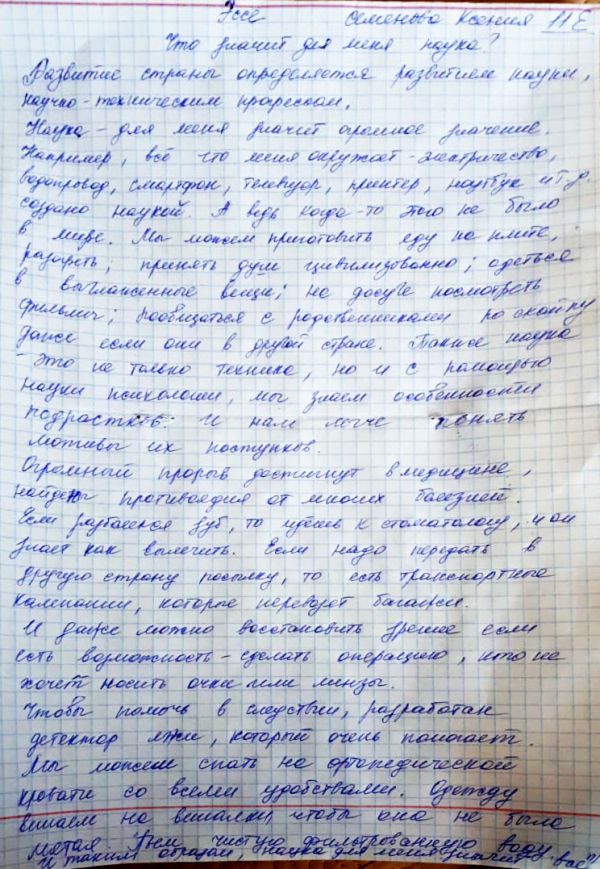 Эссе Семенова Ксения 11Е
Что значит для меня наука?
Развитие страны определяется развитием науки,
научно-техническим прогрессом.
Наука - для меня значит огромное значение.
Например, всё что меня окружает - электричество,
водопровод, смартфон, телевизор, принтер, ноутбук и т.д.
создано наукой. А ведь когда-то этого не было
в мире. Мы можем приготовить еду на плите,
разогреть; принять душ цивилизованно; одеться
в выглаженные вещи; на досуге посмотреть
фильмы; пообщаться с родственниками по скайпу
даже если они в другой стране. Также наука
- это не только техника, но и с помощью
науки психологии, мы знаем особенности
подростков. И нам легче понять
мотивы их поступков.
Огромный прорыв достигнут в медицине,
найдены противоядия от многих болезней.
Если разболелся зуб, то идёшь к стоматологу, и он
знает как вылечить. Если надо передать в
другую страну посылку, то есть транспортные
кампании, которые перевозят багажи.
И даже можно восстановить зрение если
есть возможность - сделать операцию, кто не
хочет носить очки или линзы.
Чтобы помочь в следствии, разработан
детектор лжи, который очень помогает.
Мы можем спать на ортопедической
кровати со всеми удобствами. Одежду
вешаем на вешалки, чтобы она не была
мятая. Пьём чистую фильтрованную воду
И таким образом, наука для меня значит "всё"!